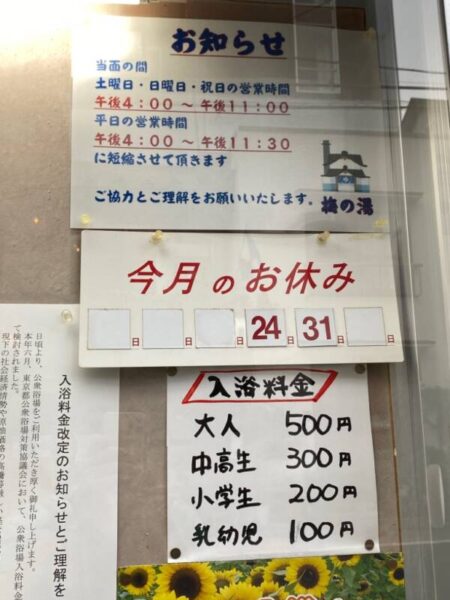 お知らせ
当面の間
土曜日・日曜日・祝日の営業時間
午後4:00～午後11:00
平日の営業時間
午後4:00～午後11:30
に短縮させて頂きます
ご協力とご理解をお願いいたします。
梅の湯
今月のお休み
日 日 日 24日 31日 日
入浴料金
大人 500円
中高生 300円
小学生 200円
乳幼児 100円
入浴料金改定のお知らせとご理解を
日頃より、公衆浴場をご利用いただき厚く御礼申し上げます。
本年六月、東京都公衆浴場対策協議会において、公衆浴場入浴料金
て検討されました。
現下の社会経済情勢や原油価格の高騰等